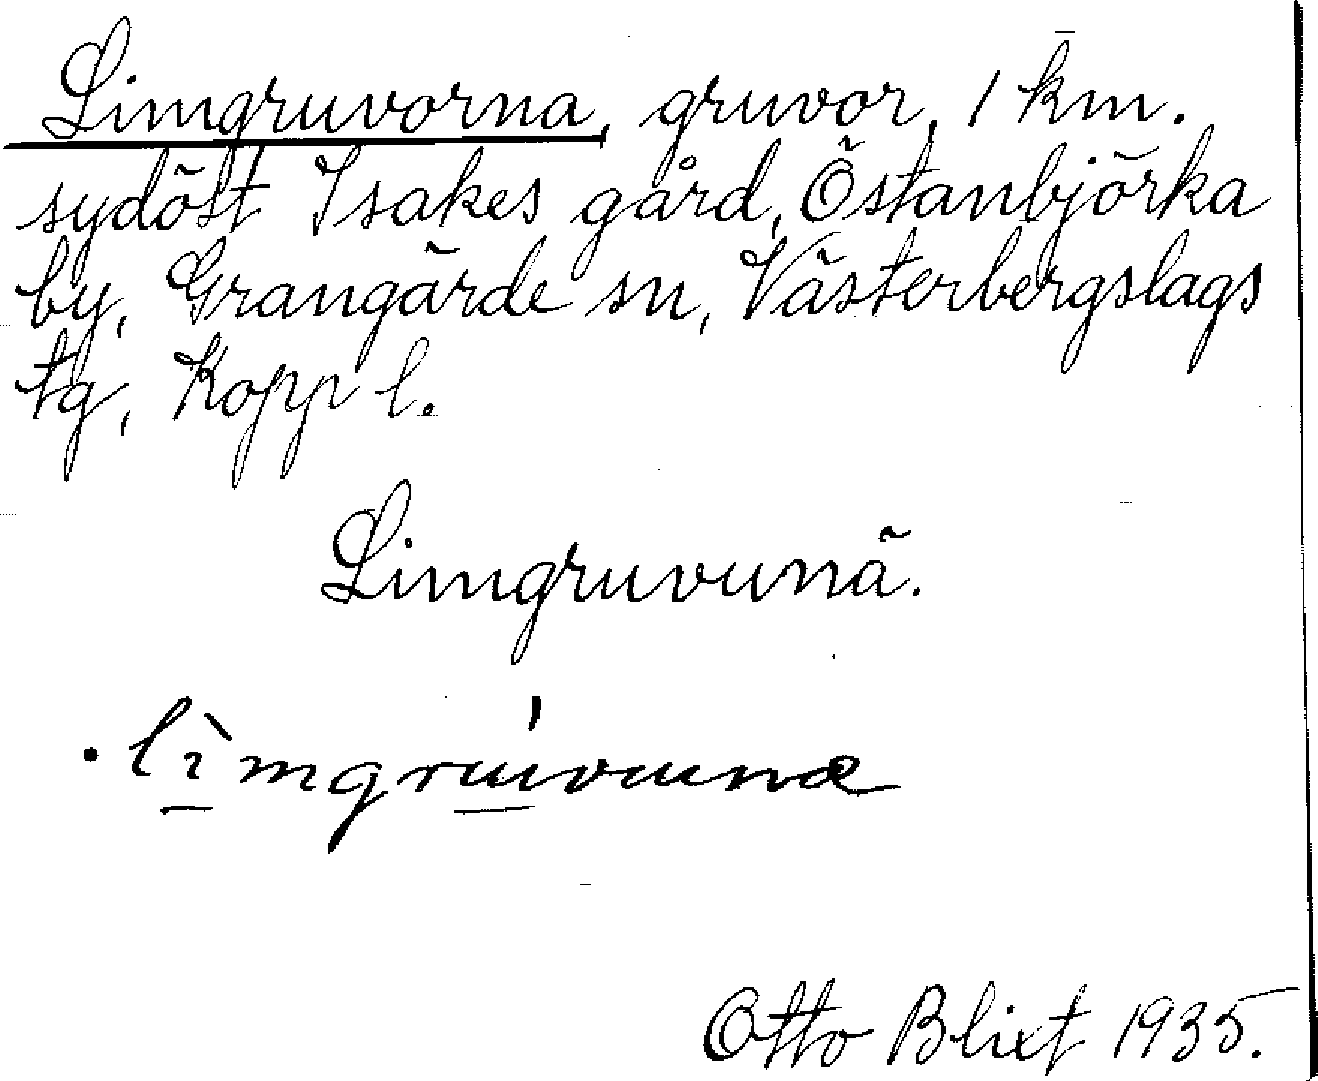 Limgruvorna, gruvor, 1 km.
sydöst Isakes gård, Östanbjörka
by, Grangärde sn, Västerbergslags
tg, Kopp l.
Limgruvunä.
. lìmgruvunæ
Otto Blixt 1935.